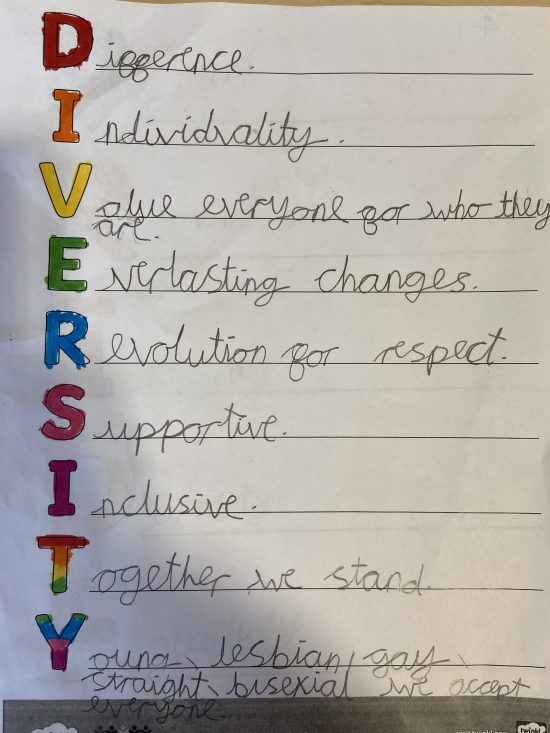 Difference.
Individuality.
Value everyone for who they
are.
Everlasting changes.
Revolution for respect.
Supportive.
Inclusive.
Together we stand.
Young, lesbian, gay,
straight, bisexial we accept
everyone.
twinkl